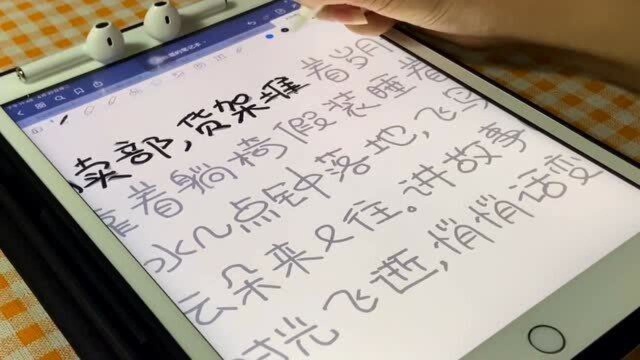 卖部,货架堆着岁月
靠着躺椅假装睡着
水几点钟落地,飞鸟
云朵来又往。讲故事
时光飞逝,悄悄话变